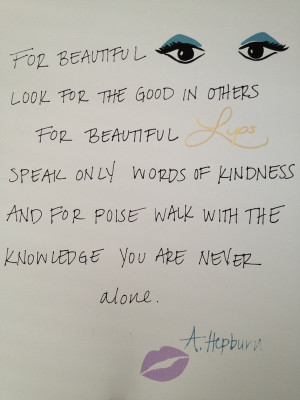 FOR BEAUTIFUL
LOOK FOR THE GOOD IN OTHERS
FOR BEAUTIFUL Lips
SPEAK ONLY WORDS OF KINDNESS
AND FOR POISE WALK WITH THE
KNOWLEDGE YOU ARE NEVER
alone.
A. Hepburn